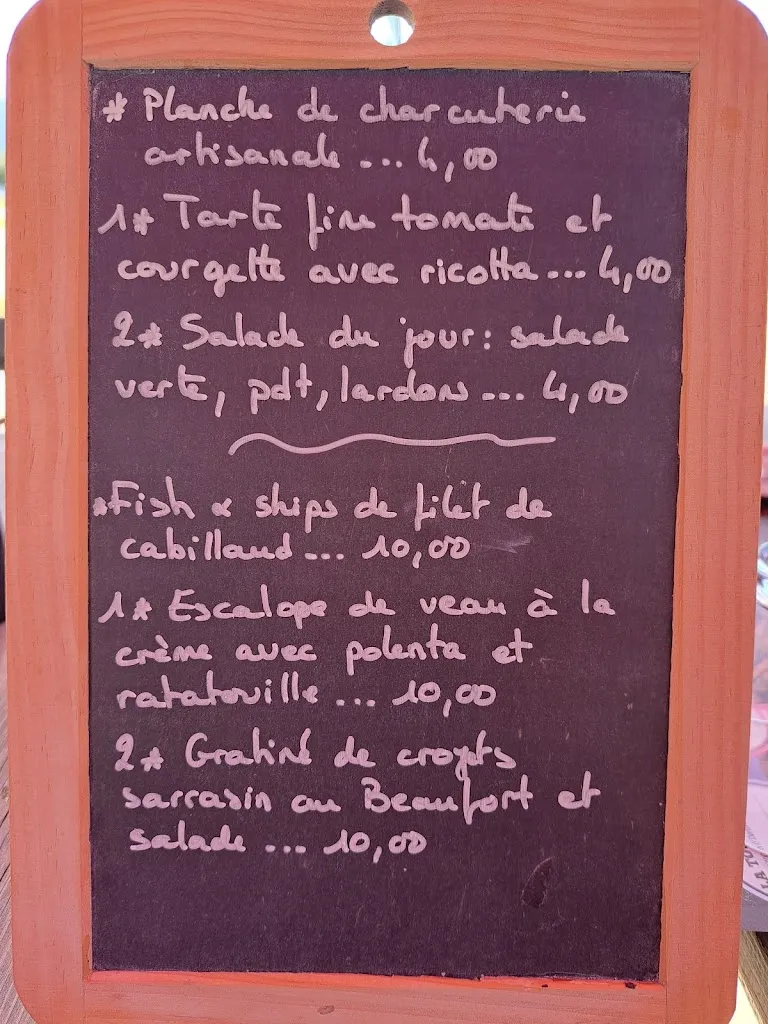 * Planche de charcuterie
artisanale ... 4,00
1* Tarte fine tomate et
courgette avec ricotta ... 4,00
2* Salade du jour : salade
verte, pdt, lardons ... 4,00
*Fish & ships de filet de
cabillaud ... 10,00
1* Escalope de veau à la
crème avec polenta et
ratatouille ... 10,00
2* Gratiné de crozets
sarrasin au Beaufort et
salade ... 10,00